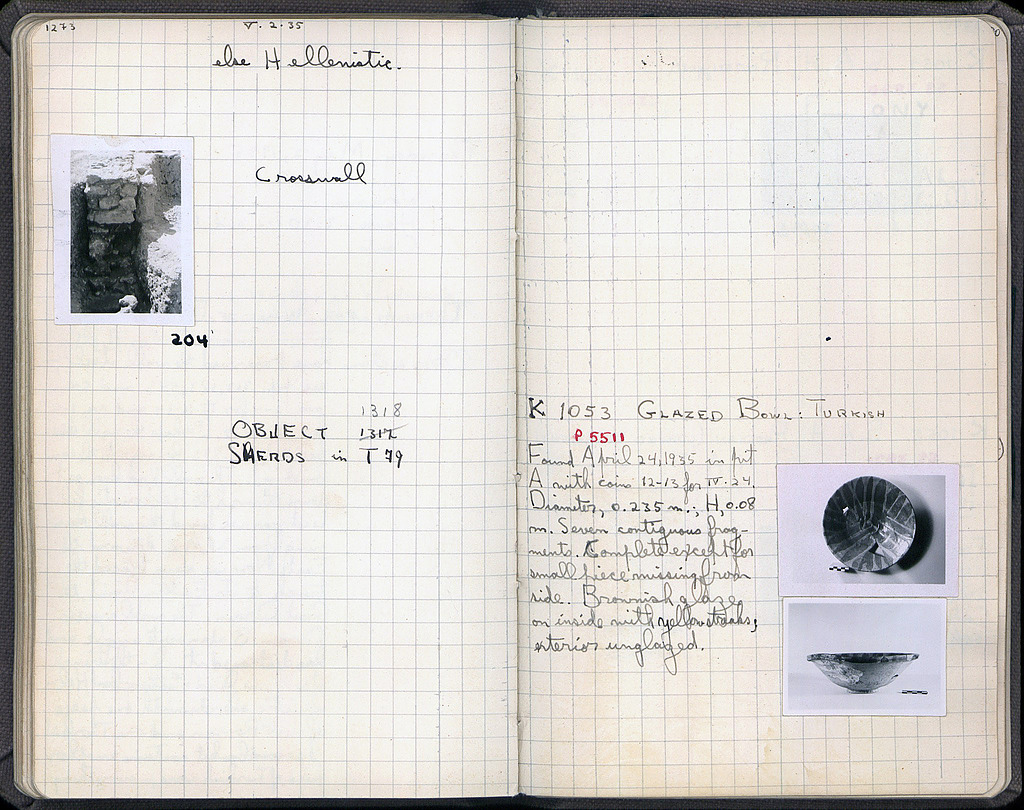 1273
V. 2. 35
else Hellenistic.
Crosswall
204'
1318
OBJECT 1317
SHERDS in T 79
K 1053 GLAZED BOWL: TURKISH
P 5511
Found April 24, 1935 in pit
A with coins 12-13 for IV. 24.
Diameter, 0.235 m.; H, 0.08
m. Seven contiguous frag-
ments. Complete except for
small piece missing from
side. Brownish glaze
on inside with yellow streaks;
exterior unglazed.